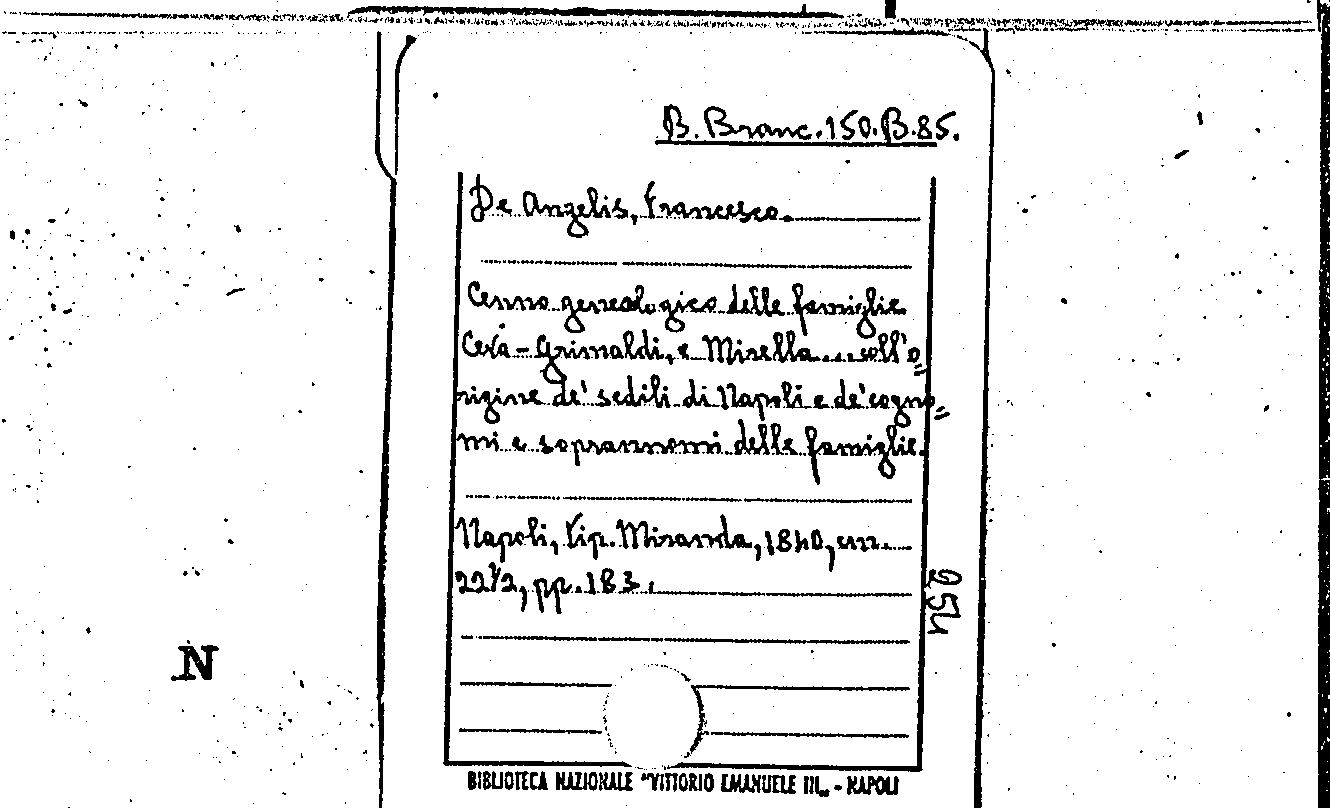 B. Branc. 150. B. 85.
De Angelis, Francesco.
Cenno genealogico delle famiglie
Cevà-Grimaldi, e Mirella....coll'o"
rigine de' sedili di Napoli e de' cogno"
mi e soprannomi delle famiglie.
Napoli, Tip. Miranda, 1840, cm.
22½, pp. 183.
254
N
BIBLIOTECA NAZIONALE "VITTORIO EMANUELE III„ - NAPOLI